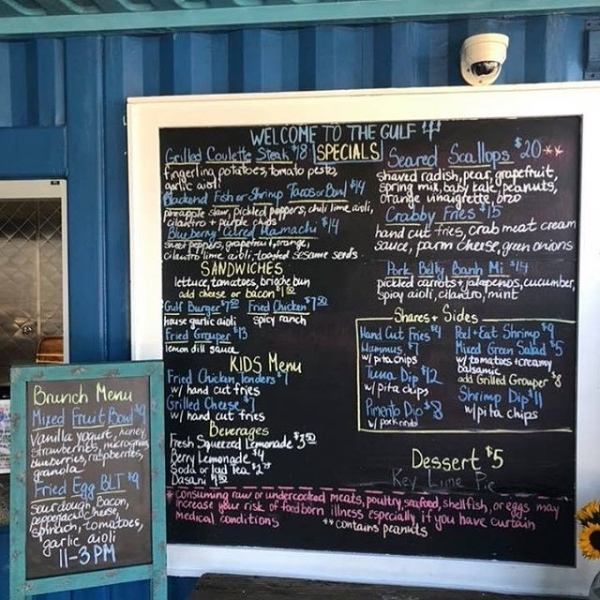 WELCOME TO THE GULF
SPECIALS
Grilled Coulette Steak $18
fingerling potatoes, tomato pesto,
garlic aioli
Blackend Fish or Shrimp Tacos or Bowl $14
pineapple slaw, pickled peppers, chili lime aioli,
cilantro + purple chips
Blueberry Cured Hamachi $14
sweet peppers, grapefruit, orange,
cilantro lime aioli, toasted sesame seeds
SANDWICHES
lettuce, tomatoes, brioche bun
add cheese or bacon $1.50
Gulf Burger $7.50 Fried Chicken $7.50
house garlic aioli spicy ranch
Fried Grouper $13
lemon dill sauce
KIDS Menu
Fried Chicken Tenders $7
w/ hand cut fries
Grilled Cheese $7
w/ hand cut fries
Beverages
Fresh Squeezed Lemonade $3.50
Berry Lemonade $4
Soda or Iced Tea
Dasani
Seared Scallops $20**
shaved radish, pear, grapefruit,
spring mix, baby kale, peanuts,
orange vinaigrette, orzo
Crabby Fries $15
hand cut fries, crab meat cream
sauce, parm cheese, green onions
Pork Belly Banh Mi $14
pickled carrots + jalapenos, cucumber,
spicy aioli, cilantro, mint
Shares + Sides
Hand Cut Fries $4
Hummus $7
w/ pita chips
Tuna Dip $12
w/ pita chips
Pimento Dip $8
w/ pork rinds
Peel + Eat Shrimp $9
Mixed Green Salad $5
w/ tomatoes + creamy
balsamic
add Grilled Grouper $8
Shrimp Dip $11
w/ pita chips
Dessert $5
Key Lime Pie
* Consuming raw or undercooked meats, poultry, seafood, shellfish, or eggs may
increase your risk of foodborn illness especially if you have curtain
medical conditions
** contains peanuts
Brunch Menu
Mixed Fruit Bowl $9
vanilla yogurt, honey,
strawberries, microgreens,
blueberries, raspberries,
granola
Fried Egg BLT $9
sourdough, bacon,
pepperjack cheese,
spinach, tomatoes,
garlic aioli
11-3 PM